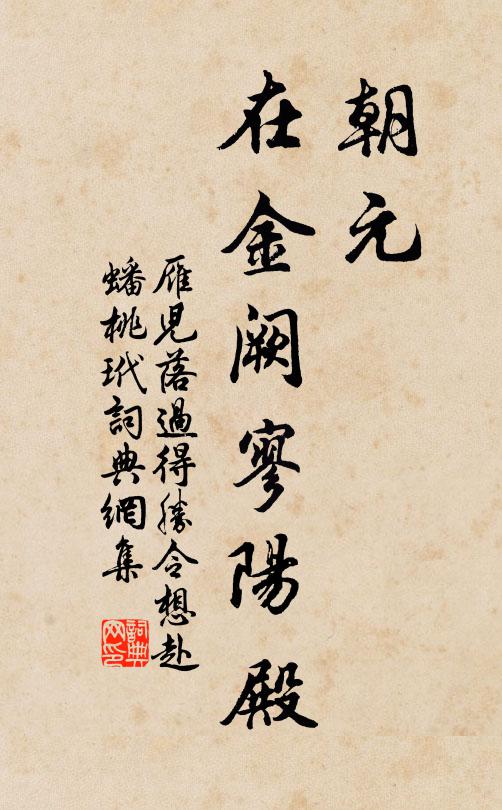 朝元
在金闕寥陽殿
雁兒落過得勝令想赴
蟠桃玳詞典網集
詞典網印